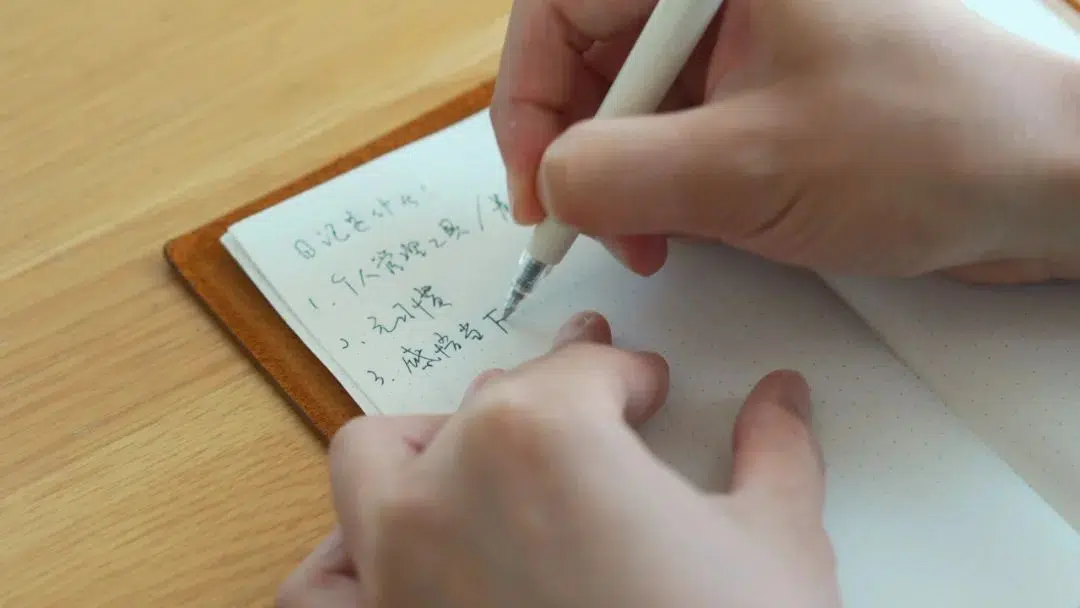 日记是什么
1. 个人管理工具/
2. 元习惯
3. 感悟当下